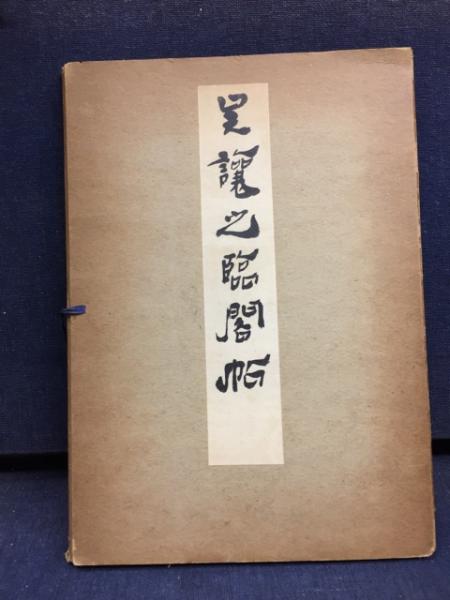 吴讓之臨閣帖